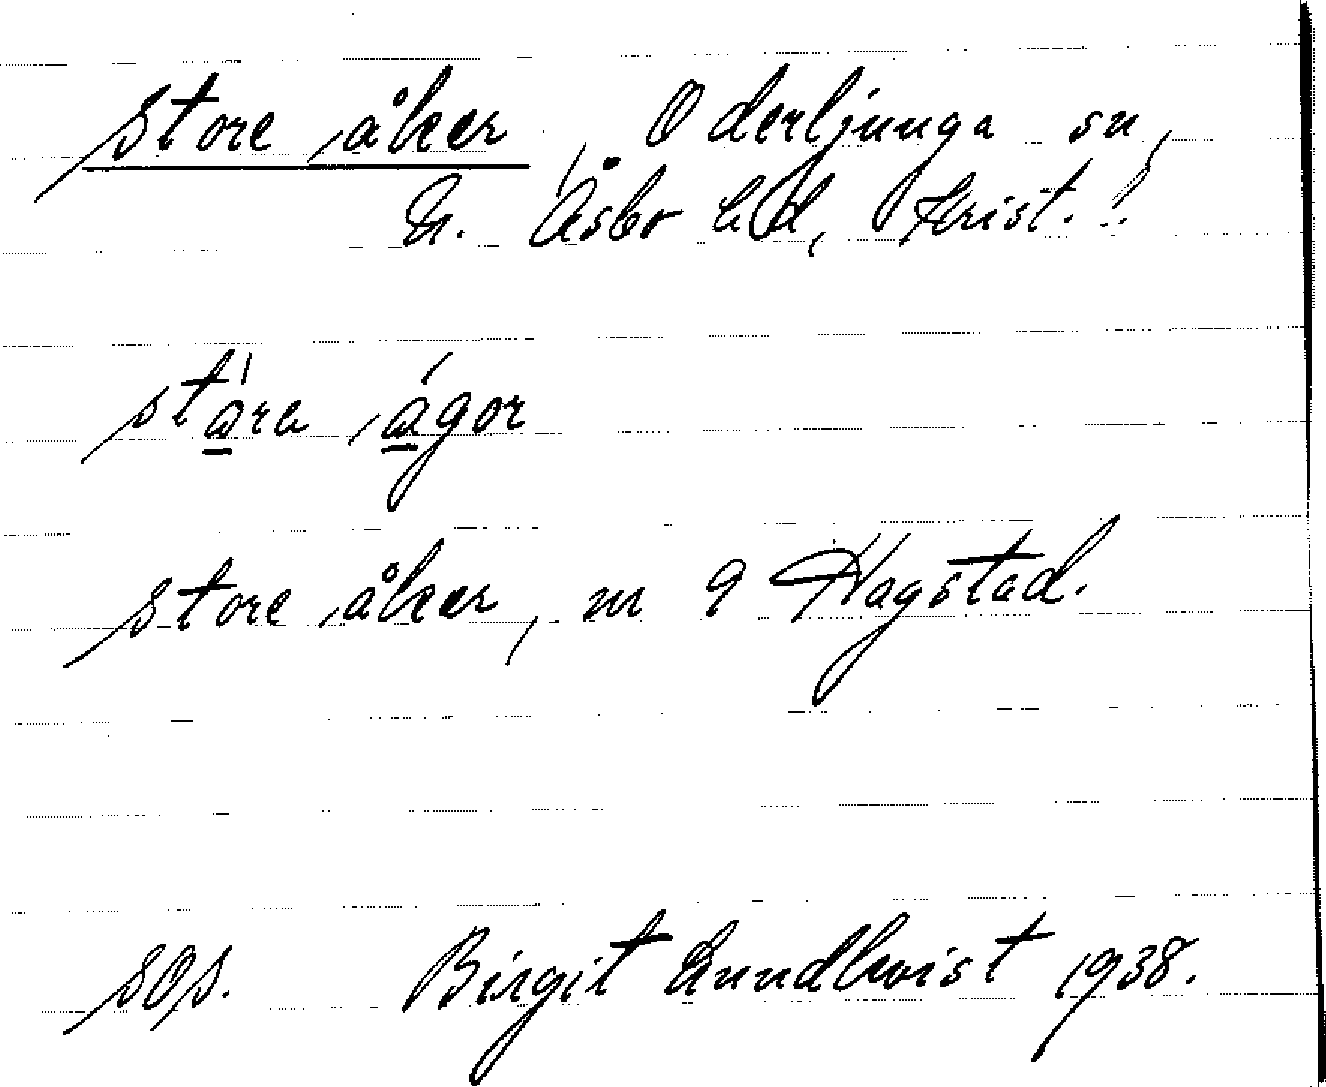 store åker, Oderljunga sn,
N. Åsbo hd, Krist. l.
stára ágor
store åker, nr 9 Hagstad.
sgs. Birgit Lundkvist 1938.